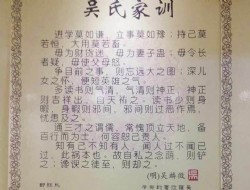 吴氏家训
进学莫如谦，立事莫如豫；持己莫
若恒，大用莫若畜。
毋为财货迷，毋为妻子蛊，毋令长
者疑，毋使父母怒。
争目前之事，则忘远大之图；深儿
女之怀，便短英雄之气。
多读书则气清，气清则神正，神正
则吉祥出，自天祐之；读书少则身
暇，身暇则邪间，邪间则过恶作焉，
忧患及之。
通三才之谓儒，常愧顶立天地；备
百行而为士，何容恕己责人。
知有己不知有人，闻人过不闻己
过，此祸本也。故自私之念萌，则铲
之；谗谀之徒至，则却之。
(明)吴麟徵